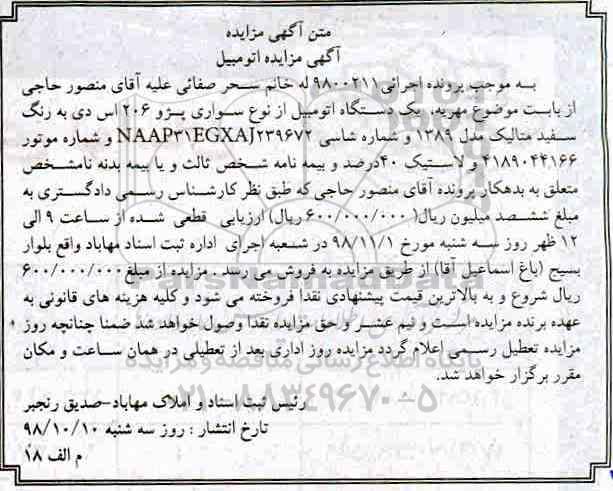 متن آگهی مزایده
آگهی مزایده اتومبیل
به موجب پرونده اجرائی ۹۸۰۰۲۱۱ له خانم سحر صفائی علیه آقای منصور حاجی
از بابت موضوع مهریه، یک دستگاه اتومبیل از نوع سواری پژو ۲۰۶ اس دی به رنگ
سفید متالیک مدل ۱۳۸۹ و شماره شاسی NAAP۳۱EGXAJ۲۳۹۶۷۲ و شماره موتور
۴۱۸۹۰۴۴۱۶۶ و لاستیک ۴۰درصد و بیمه نامه شخص ثالث و یا بیمه بدنه نامشخص
متعلق به بدهکار پرونده آقای منصور حاجی که طبق نظر کارشناس رسمی دادگستری به
مبلغ ششصد میلیون ریال( ۶۰۰/۰۰۰/۰۰۰ ریال) ارزیابی قطعی شده از ساعت ۹ الی
۱۲ ظهر روز سه شنبه مورخ ۹۸/۱۱/۱ در شعبه اجرای اداره ثبت اسناد مهاباد واقع بلوار
بسیج (باغ اسماعیل آقا) از طریق مزایده به فروش می رسد . مزایده از مبلغ ۶۰۰/۰۰۰/۰۰۰
ریال شروع و به بالاترین قیمت پیشنهادی نقدا فروخته می شود و کلیه هزینه های قانونی به
عهده برنده مزایده است و نیم عشر و حق مزایده نقدا وصول خواهد شد ضمنا چنانچه روز
مزایده تعطیل رسمی اعلام گردد مزایده روز اداری بعد از تعطیلی در همان ساعت و مکان
مقرر برگزار خواهد شد.
رئیس ثبت اسناد و املاک مهاباد-صدیق رنجبر
تاریخ انتشار : روز سه شنبه ۹۸/۱۰/۱۰
م الف ۱۸
ParsNamadData
پایگاه اطلاع رسانی مناقصه و مزایده
۰۲۱-۸۸۳۴۹۶۷۰-۵